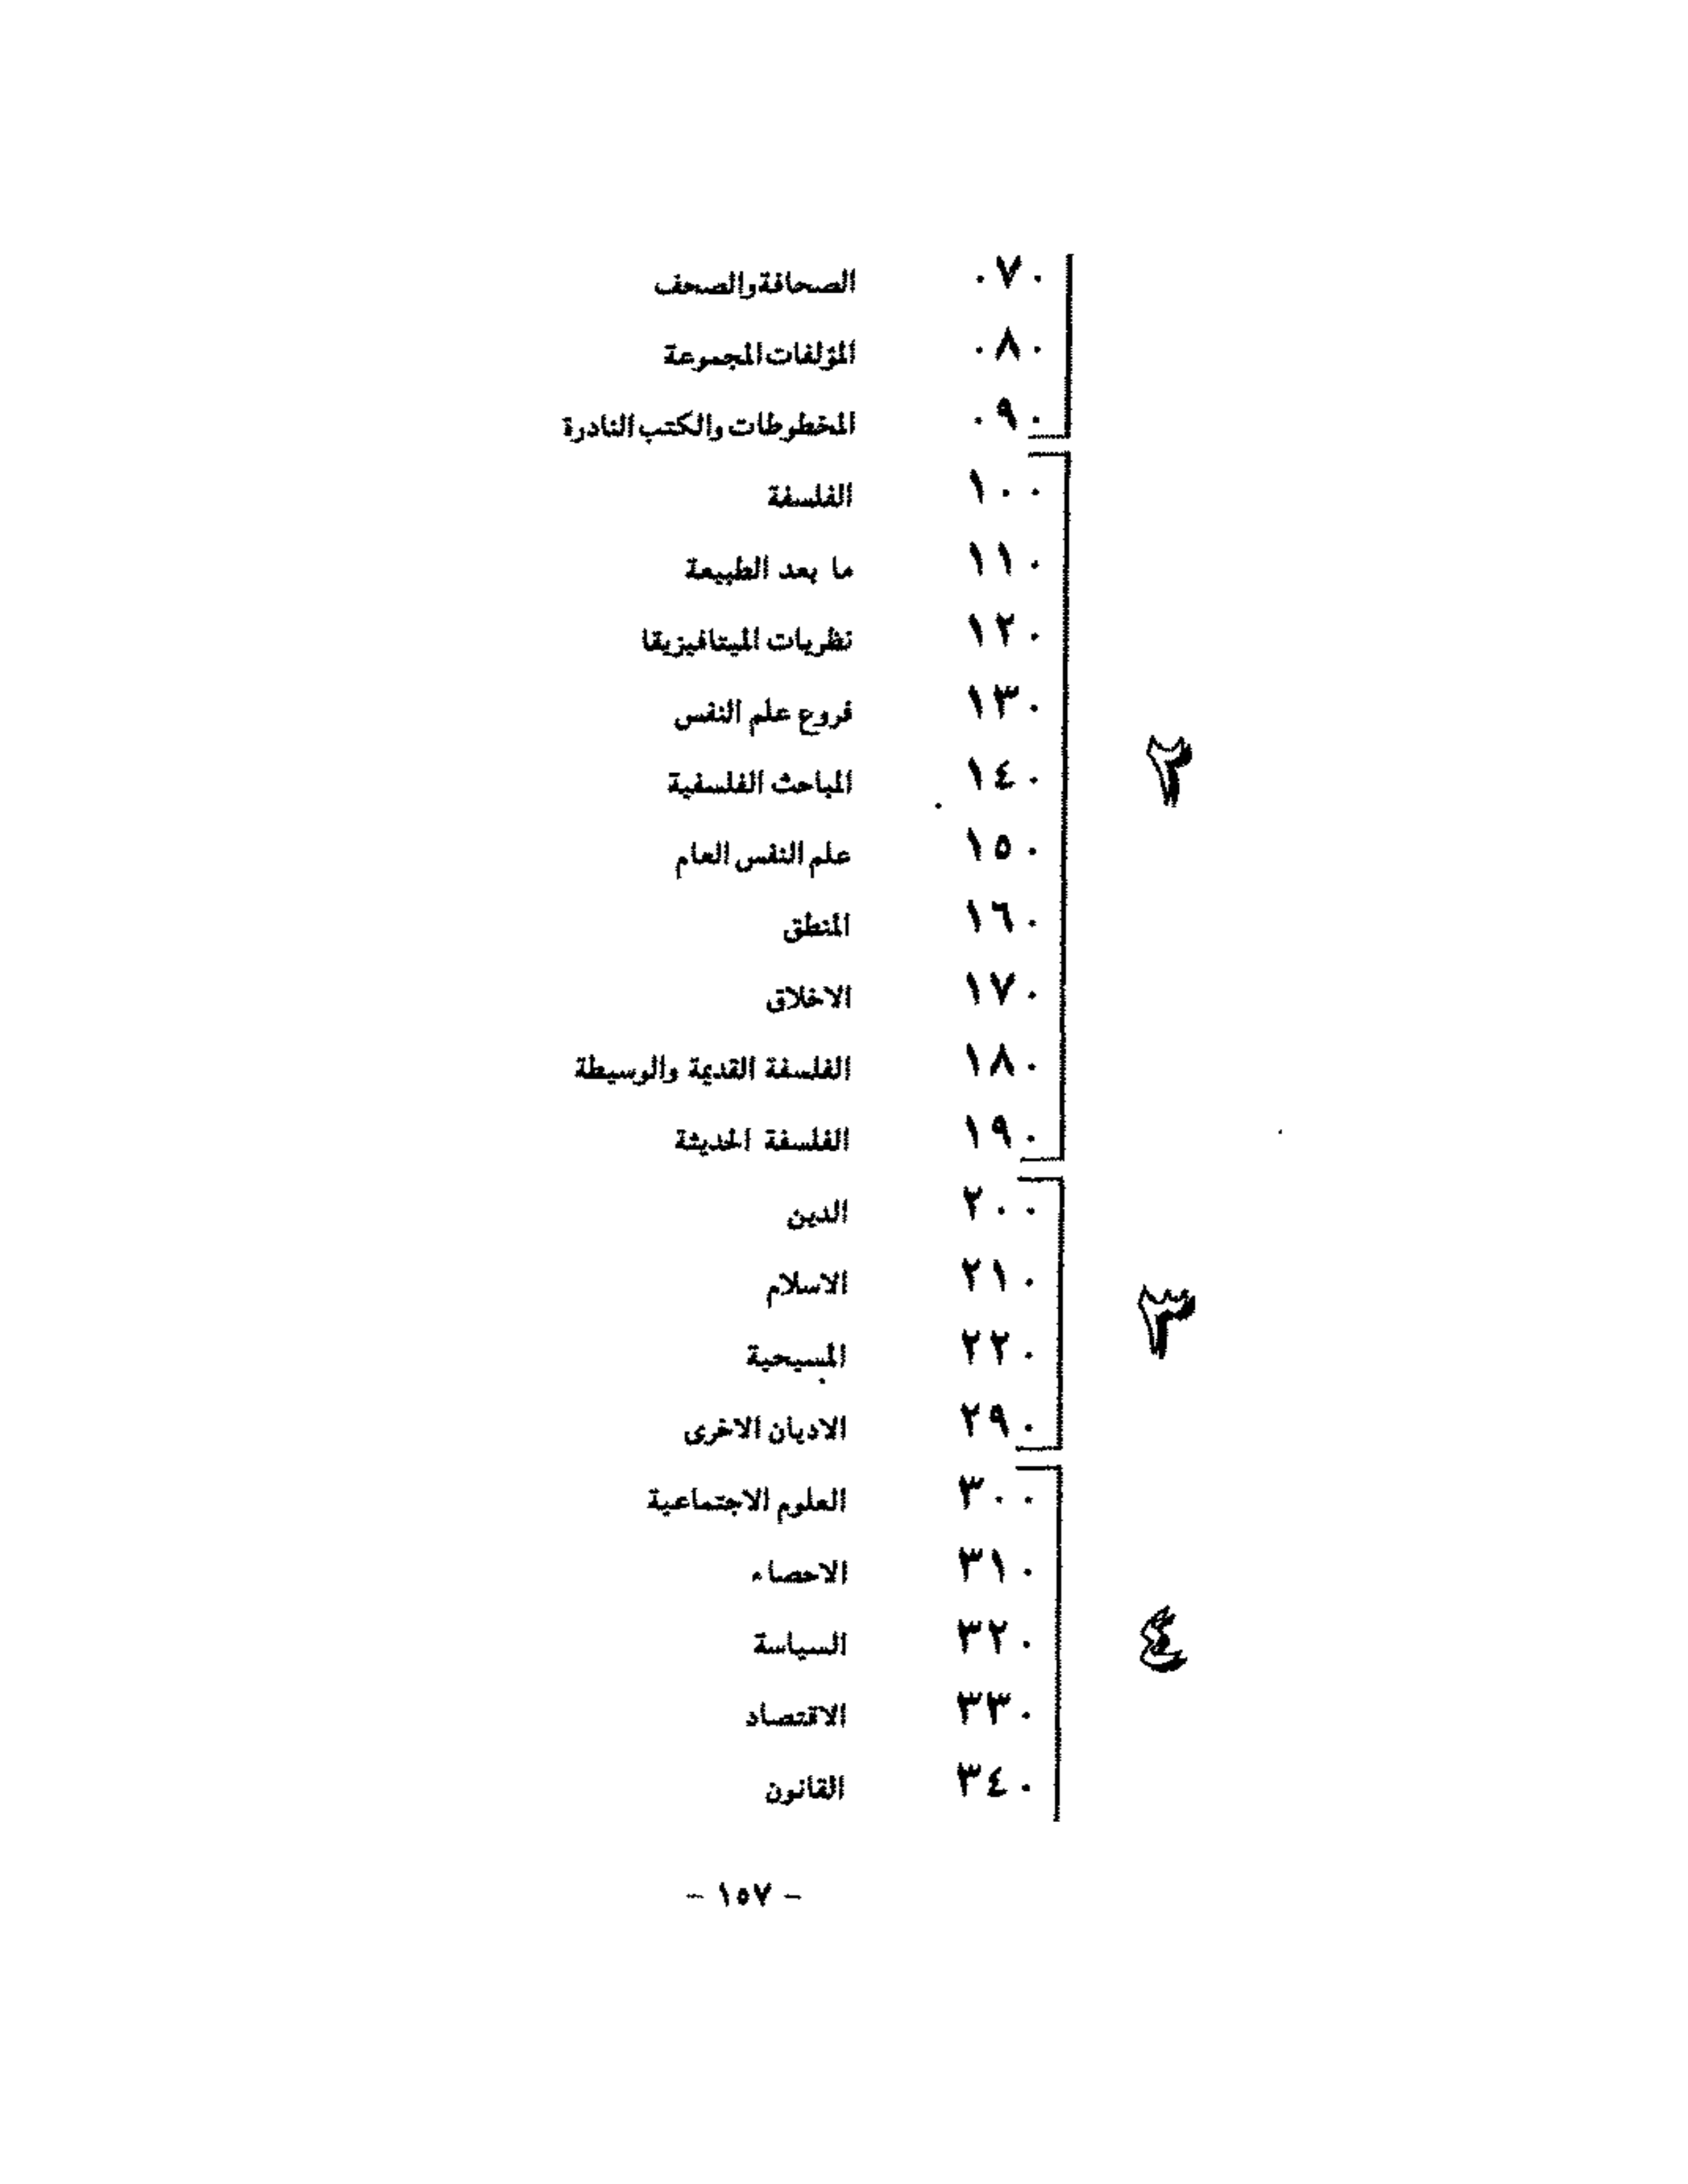 ٠٧٠ الصحافة والصحف
٠٨٠ المؤلفات المجموعة
٠٩٠ المخطوطات والكتب النادرة
١٠٠ الفلسفة
١١٠ ما بعد الطبيعة
١٢٠ نظريات الميتافيزيقا
١٣٠ فروع علم النفس
٢
١٤٠ المباحث الفلسفية
١٥٠ علم النفس العام
١٦٠ المنطق
١٧٠ الاخلاق
١٨٠ الفلسفة القديمة والوسيطة
١٩٠ الفلسفة الحديثة
٢٠٠ الدين
٢١٠ الاسلام
٣
٢٢٠ المسيحية
٢٩٠ الاديان الاخرى
٣٠٠ العلوم الاجتماعية
٣١٠ الاحصاء
٤
٣٢٠ السياسة
٣٣٠ الاقتصاد
٣٤٠ القانون
- ١٥٧ -